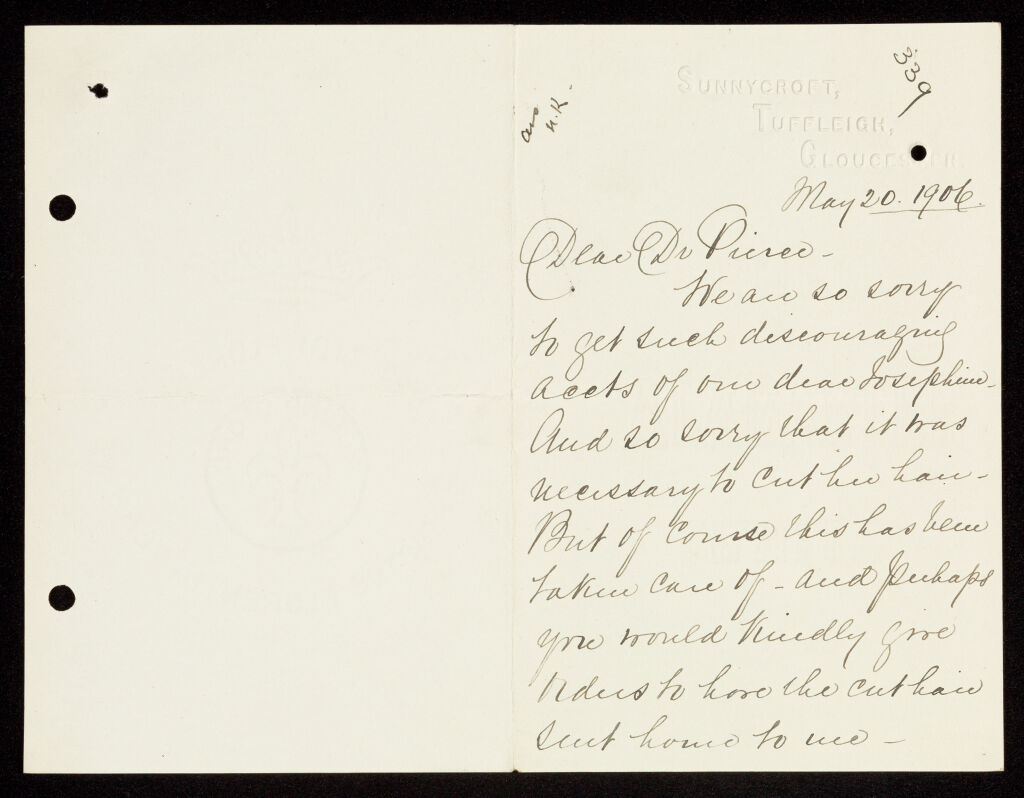 339
ans
H.K.
SUNNYCROFT,
TUFFLEIGH,
GLOUCESTER.
May 20. 1906.
Dear Dr Pierce -
We are so sorry
to get such discouraging
accts of our dear Josephine -
And so sorry that it was
necessary to cut her hair -
But of course this has been
taken care of - and perhaps
you would kindly give
orders to have the cut hair
sent home to me -